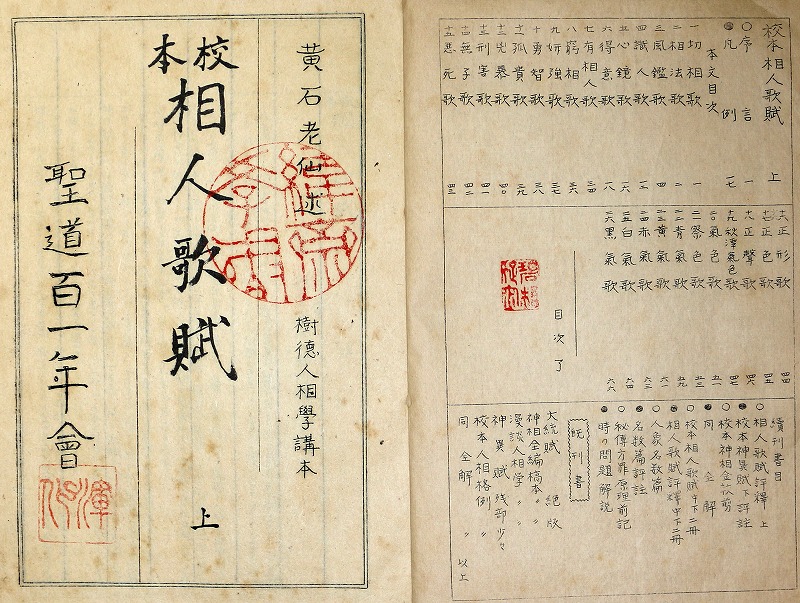 黄石老仙述
樹德人相學講本
校本
相人歌賦
上
聖道百一年會
校本相人歌賦 上
〇序言
凡例 一七
本文目次
一切相歌 一
二相法歌 一
三風鑑歌 四
四識人歌 一二
五心鏡歌 一六
六得意歌 一八
七有相人歌 三四
八窮相歌 三六
九妬強歌 三七
十勇智歌 三八
十一孤貴歌 三九
十二兇暴歌 四〇
十三刑害歌 四一
十四無子歌 四二
十五悪死歌 四三
十六正形歌 四四
十七正色歌 四五
十八正聲歌 四六
十九秋潭氣色歌 四七
二〇氣色歌
二一祭色歌
二二青氣歌 五九
二三黄氣歌 六一
二四赤氣歌 六二
二五白氣歌 六四
二六黒氣歌 六六
目次了
續刊書目
相人歌賦評釋 上
校本神異賦下評註
校本神相金᠎
同 全解
校本相人歌賦中下二冊
相人歌賦評釋中下二冊
人象名歌篇
名數篇評註
秘傳方罪原理前記
時の問題解説
既刊書
大統賦 絶版
神相全編稿本 〃
漫談人相学 〃
神異賦 残部少々
校本人相格例 〃
同 全解 〃 以上